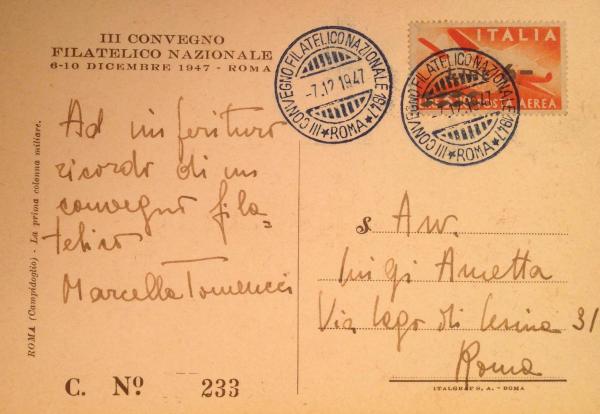 III CONVEGNO
FILATELICO NAZIONALE
6-10 DICEMBRE 1947 - ROMA
III CONVEGNO FILATELICO NAZIONALE 1947
-7.12.1947
★ROMA★
ITALIA
POSTA AEREA
III CONVEGNO FILATELICO NAZIONALE 1947
★ROMA★
Ad
ricordo di un
convegno fila=
telico
Marcella Tomeucci
S. Avv.
Luigi Ametta
Via Lago di Lesina 31
Roma
ROMA (Campidoglio) - La prima colonna miliare.
C. Nº 233
ITALGRAF S. A. - ROMA